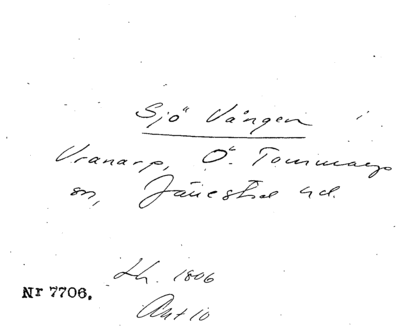 Sjö Vången
Vranarp, Ö. Tommarps
sn, Järrestad hd.
Lh. 1806
Akt 10
Nr 7706.